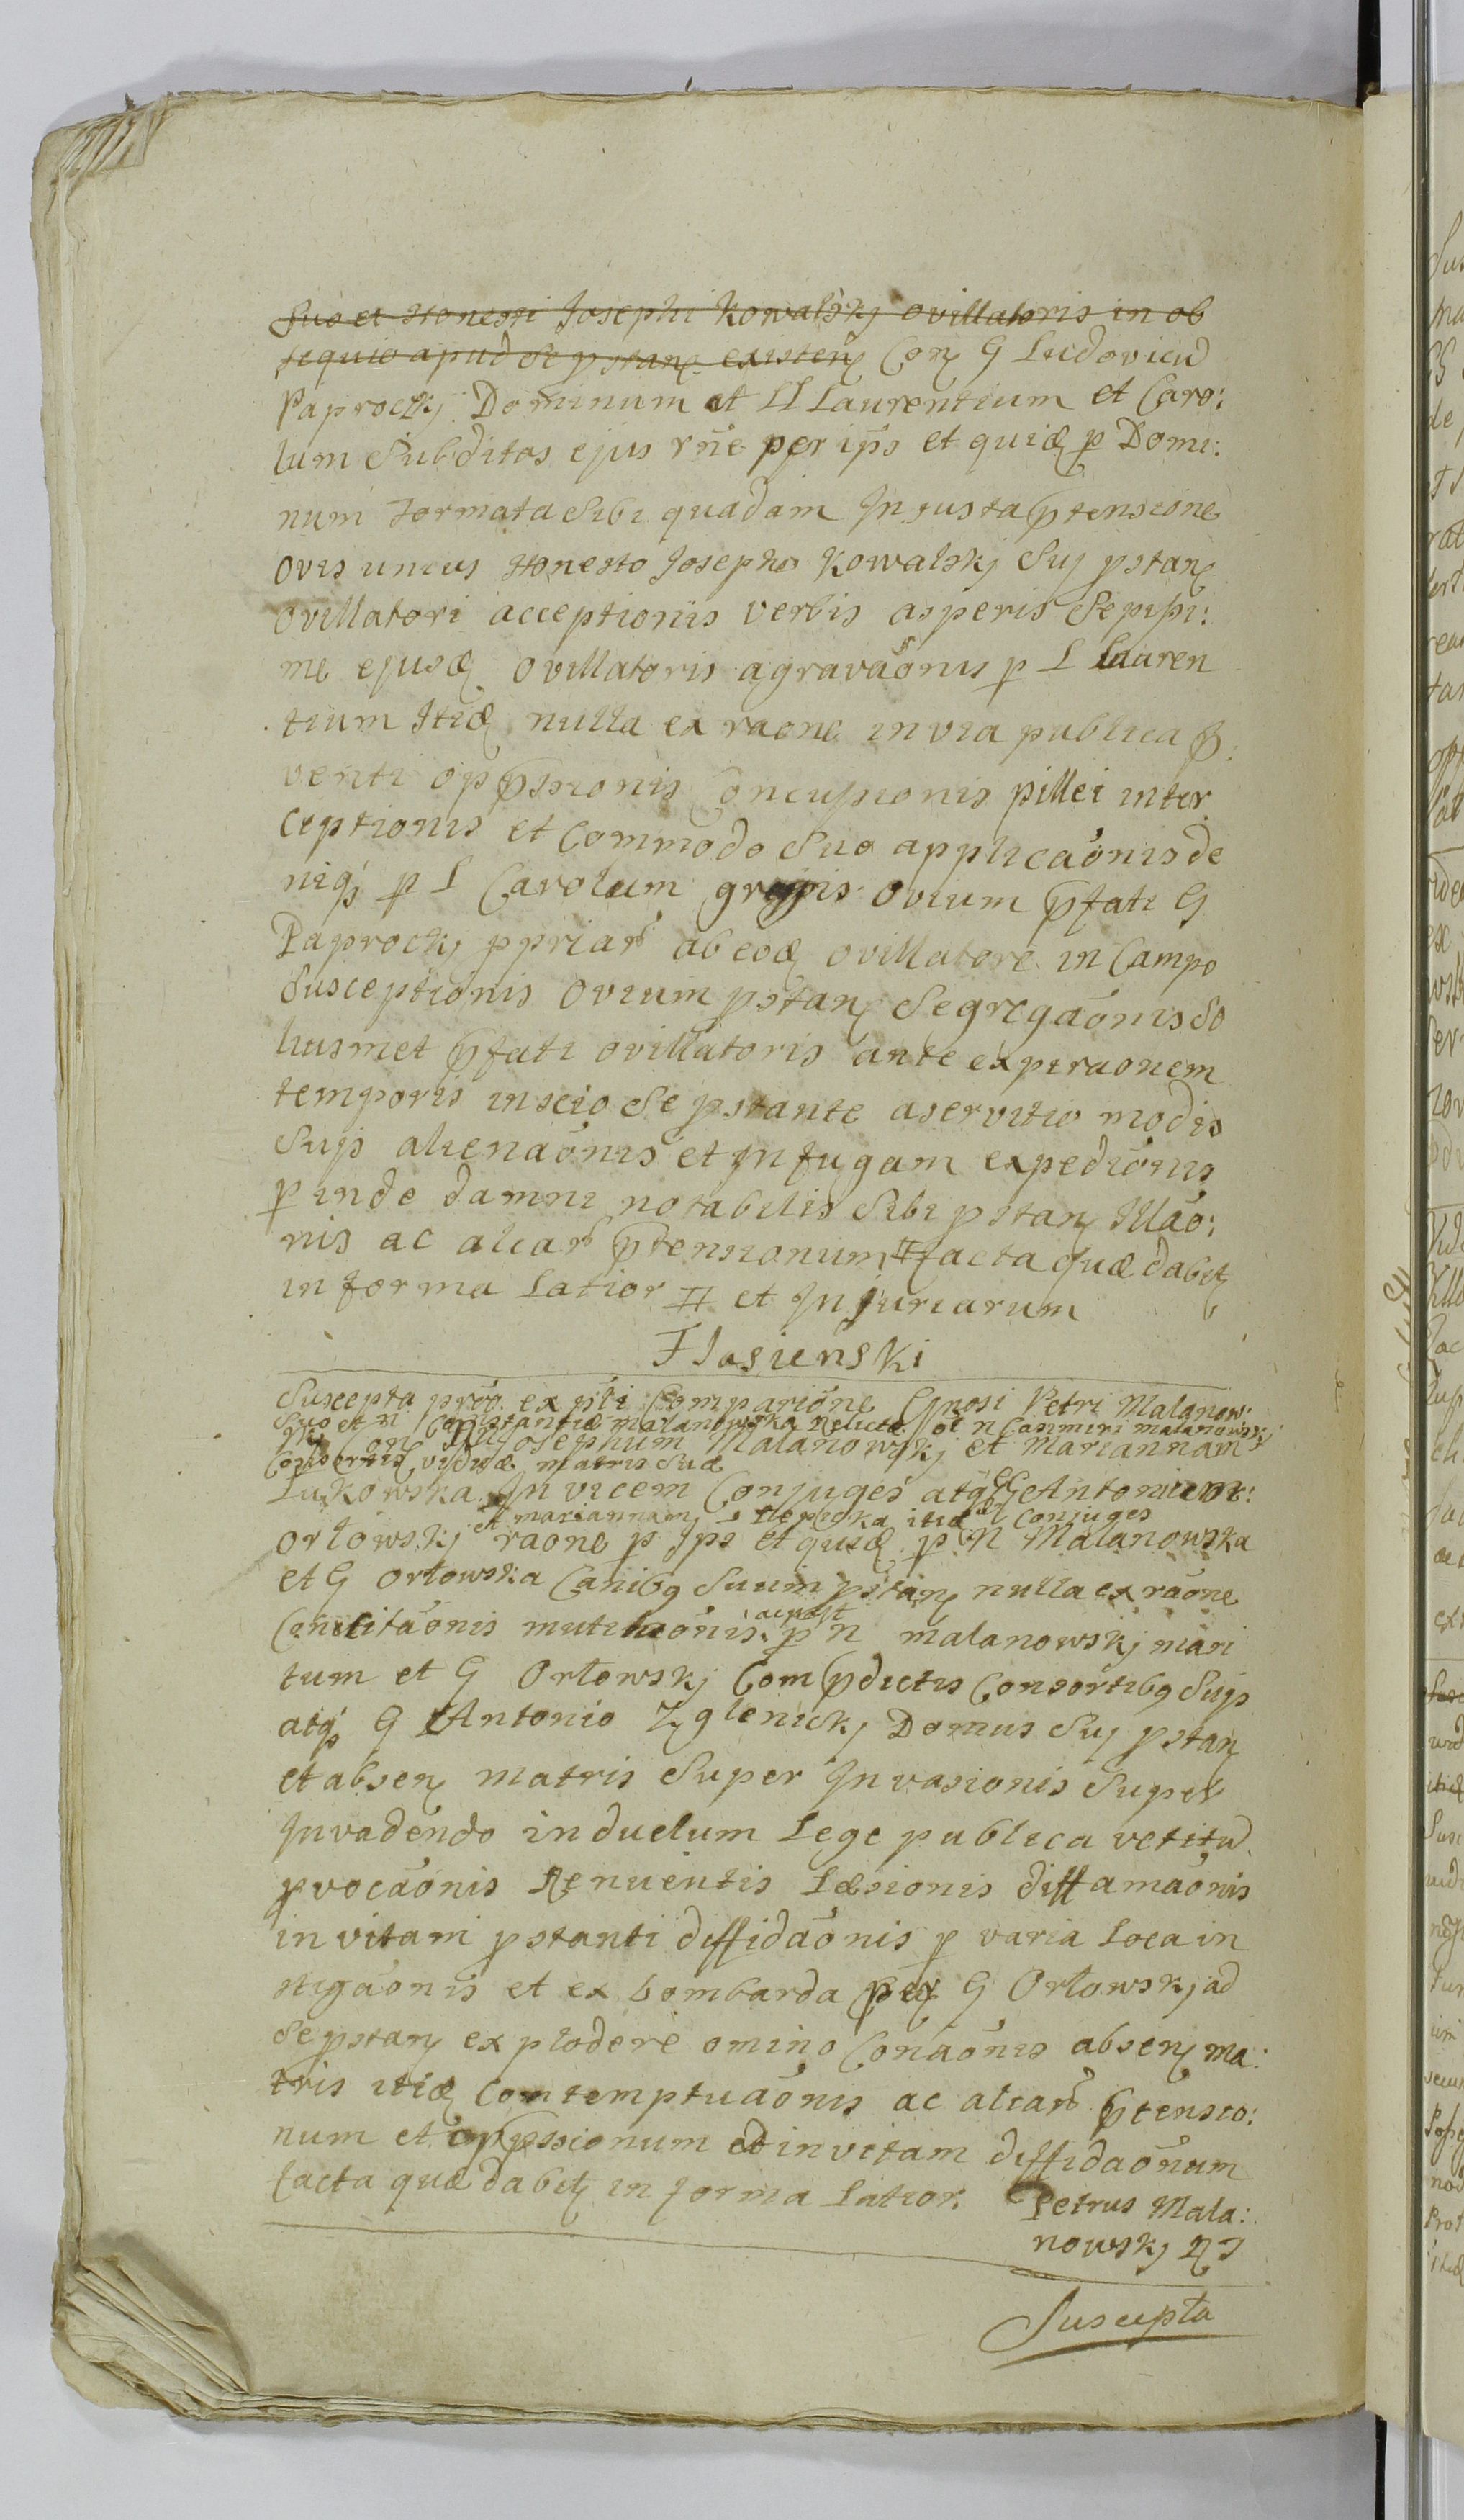 Suo et Honesti Josephi Kowalskj ovillatoris in ob
sequio apud se pstan existen Con G Ludovicu
Paprockj Dominum et LL Laurentium et Caro:
lum Subditos ejus rne per ips et quid p Domi:
num formata Sibi quadam Injusta ptensione
ovis unius Honesto Josepho Kowalskj Suj pstan
ovillatori acceptionis verbis asperis Sepissi:
me ejusd ovillatoris agravaonis p L Lauren
tium Itid nulla ex raone in via publica p:
venti oppssionis Concussionis pillei inter
ceptionis et Commodo Suo applicaonis de
niq p L Carolum gregis ovium pfati G
Paprockj ppriar ab eod ovillatore in Campo
Susceptionis ovium pstan Segregaonis So
liusmet pfati ovillatoris ante expiraonem
temporis inscio Se pstante a servitio modis
Suis alienaonis et In fugam expedionis
p inde damni notabilis Sibi pstan Illao:
nis ac aliar ptensionum # facta quæ dabit
in forma Latior # et Injuriarum
F Jasienski
Suscepta prot ex pti Comparione Gnosi Petri Malanow:
Suo et N Constantiæ Malanowska Relictæ ol N Casimiri Malanowskj
skj Con N Josephum Malanowskj et Mariannam
Consortis viduæ matris Suæ
Lukowska Invicem Conjuges atq G Antonium:
et Mariannam itid Conjuges
Orłowskj raone p ips et quid p N Malanowska
et G Orłowska Canibq Suum pstan nulla ex raone
Concitaonis mutilaonis ac post p N Malanowskj mari
tum et G Orłowskj Com pdictis Consortibq Suis
atq G Antonio Zglenickj Domus Suj pstan
et absen Matris Super Invasionis Super
Invadendo in duelum Lege publica vetitu
pvocaonis Renuentis Læsionis diffamaonis
in vitam pstanti diffidaonis p varia Loca in
stigaonis et ex bombarda p G Orłowskj ad
Se pstan explodere omino Conaonis absen ma:
tris itid Contemptuaonis ac aliar ptensio:
num et oppssionum et in vitam diffidaonum
facta quæ dabit in forma Latior. Petrus Mala:
nowskj
Suscepta